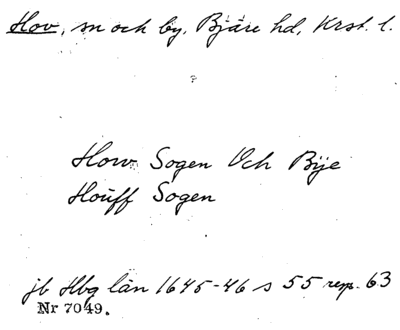 Hov, sn och by, Bjäre hd, Krst. l.
How Sogen Och Bije
Houff Sogen
jb Hbg län 1645-46 s 55 resp. 63
Nr 7049.